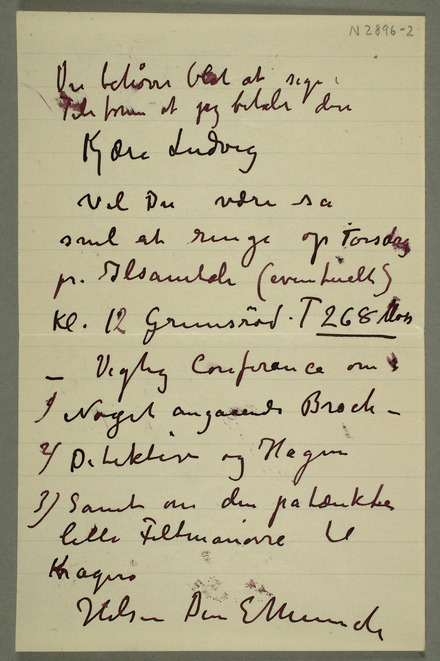 N 2896-2
Du behøver blot at sige i
Telefonen at jeg betaler den
Kjære Ludvig
Vil Du være sa
snil at ringe op Torsdag
pr. Ilsamtale (eventuelt)
Kl. 12 Grimsrød. T 268 Moss
— Vigtig Conference om
1) Noget angaaende Brock —
2) Detektiv og Hagen
3) Samt om den patænkte
lille Feltmanøvre
Kragerø
Hilsen Din E Munch